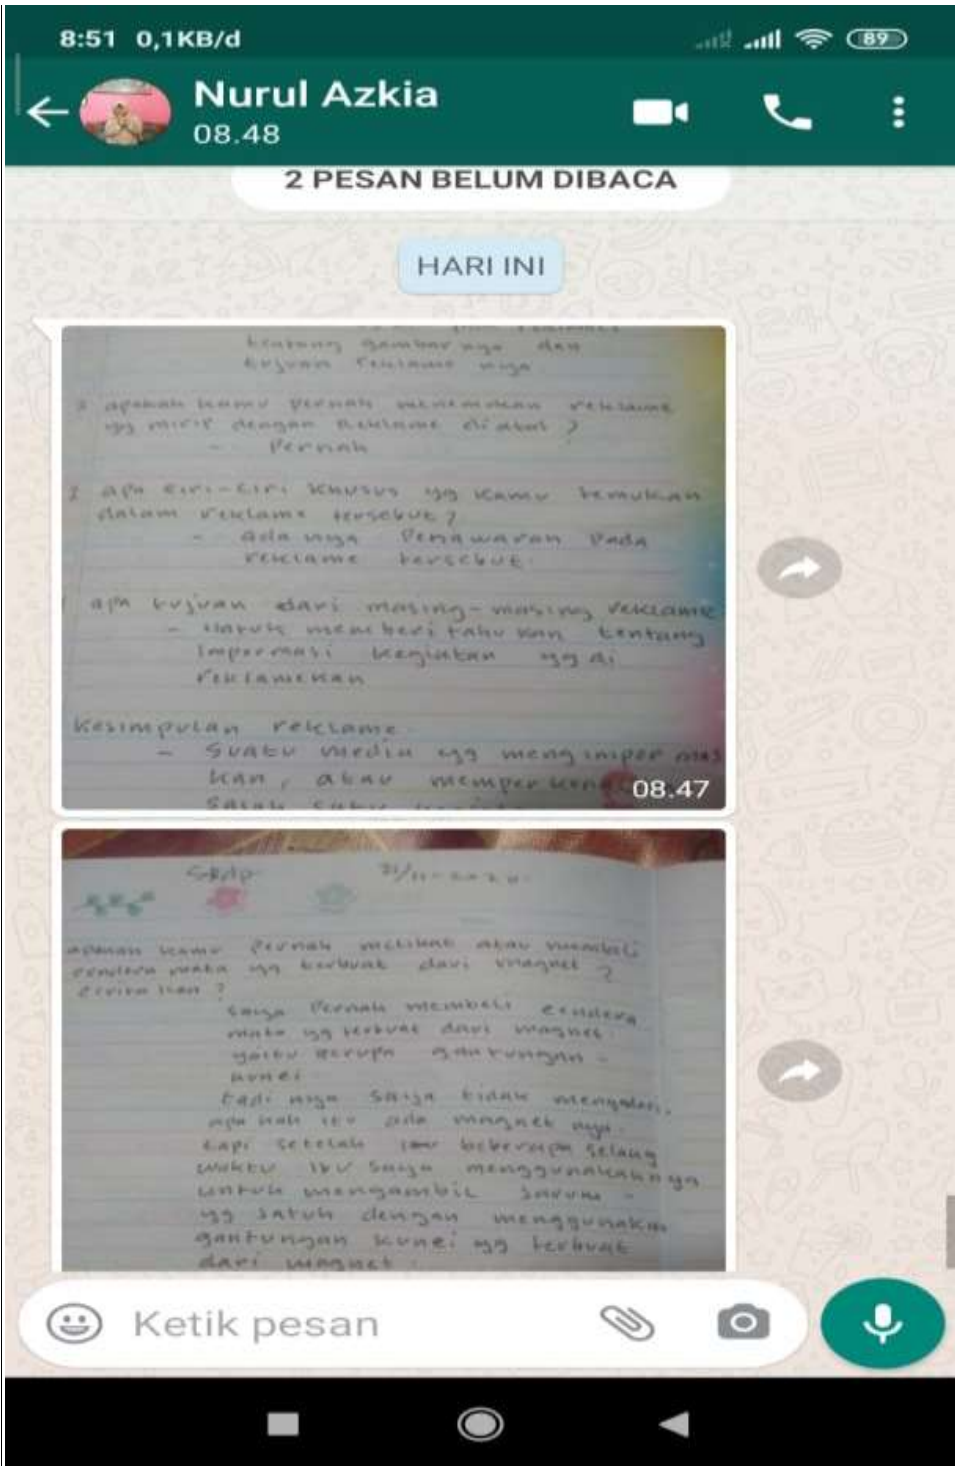 8:51 0,1KB/d
89
Nurul Azkia
08.48
2 PESAN BELUM DIBACA
HARI INI
tentang gambar nya dan
tujuan reklame nya
apakah kamu pernah menemukan reklame
yg mirip dengan reklame diatas ?
- Pernah
apa ciri-ciri khusus yg kamu temukan
dalam reklame tersebut ?
- ada nya Penawaran Pada
reklame tersebut.
apa tujuan dari masing-masing reklame
- untuk memberi tahu kan tentang
impormasi kegiatan yg di
reklamekan
Kesimpulan reklame.
- Suatu media yg mengimpor mas
kan, atau memper
salah satu
08.47
apakah kamu Pernah melihat atau membeli
cendera mata yg terbuat dari magnet ?
cerita kan ?
saya Pernah membeli cendera
mata yg terbuat dari magnet.
yaitu berupa gantungan -
kunci
tadi nya saya tidak mengalesi,
apa kah itu ada magnet nya.
tapi setelah beberapa selang
waktu itu saya menggunakannya
untuk mengambil Jarum -
yg Jatuh dengan menggunakan
gantungan kunci yg terbuat
dari magnet.
Ketik pesan